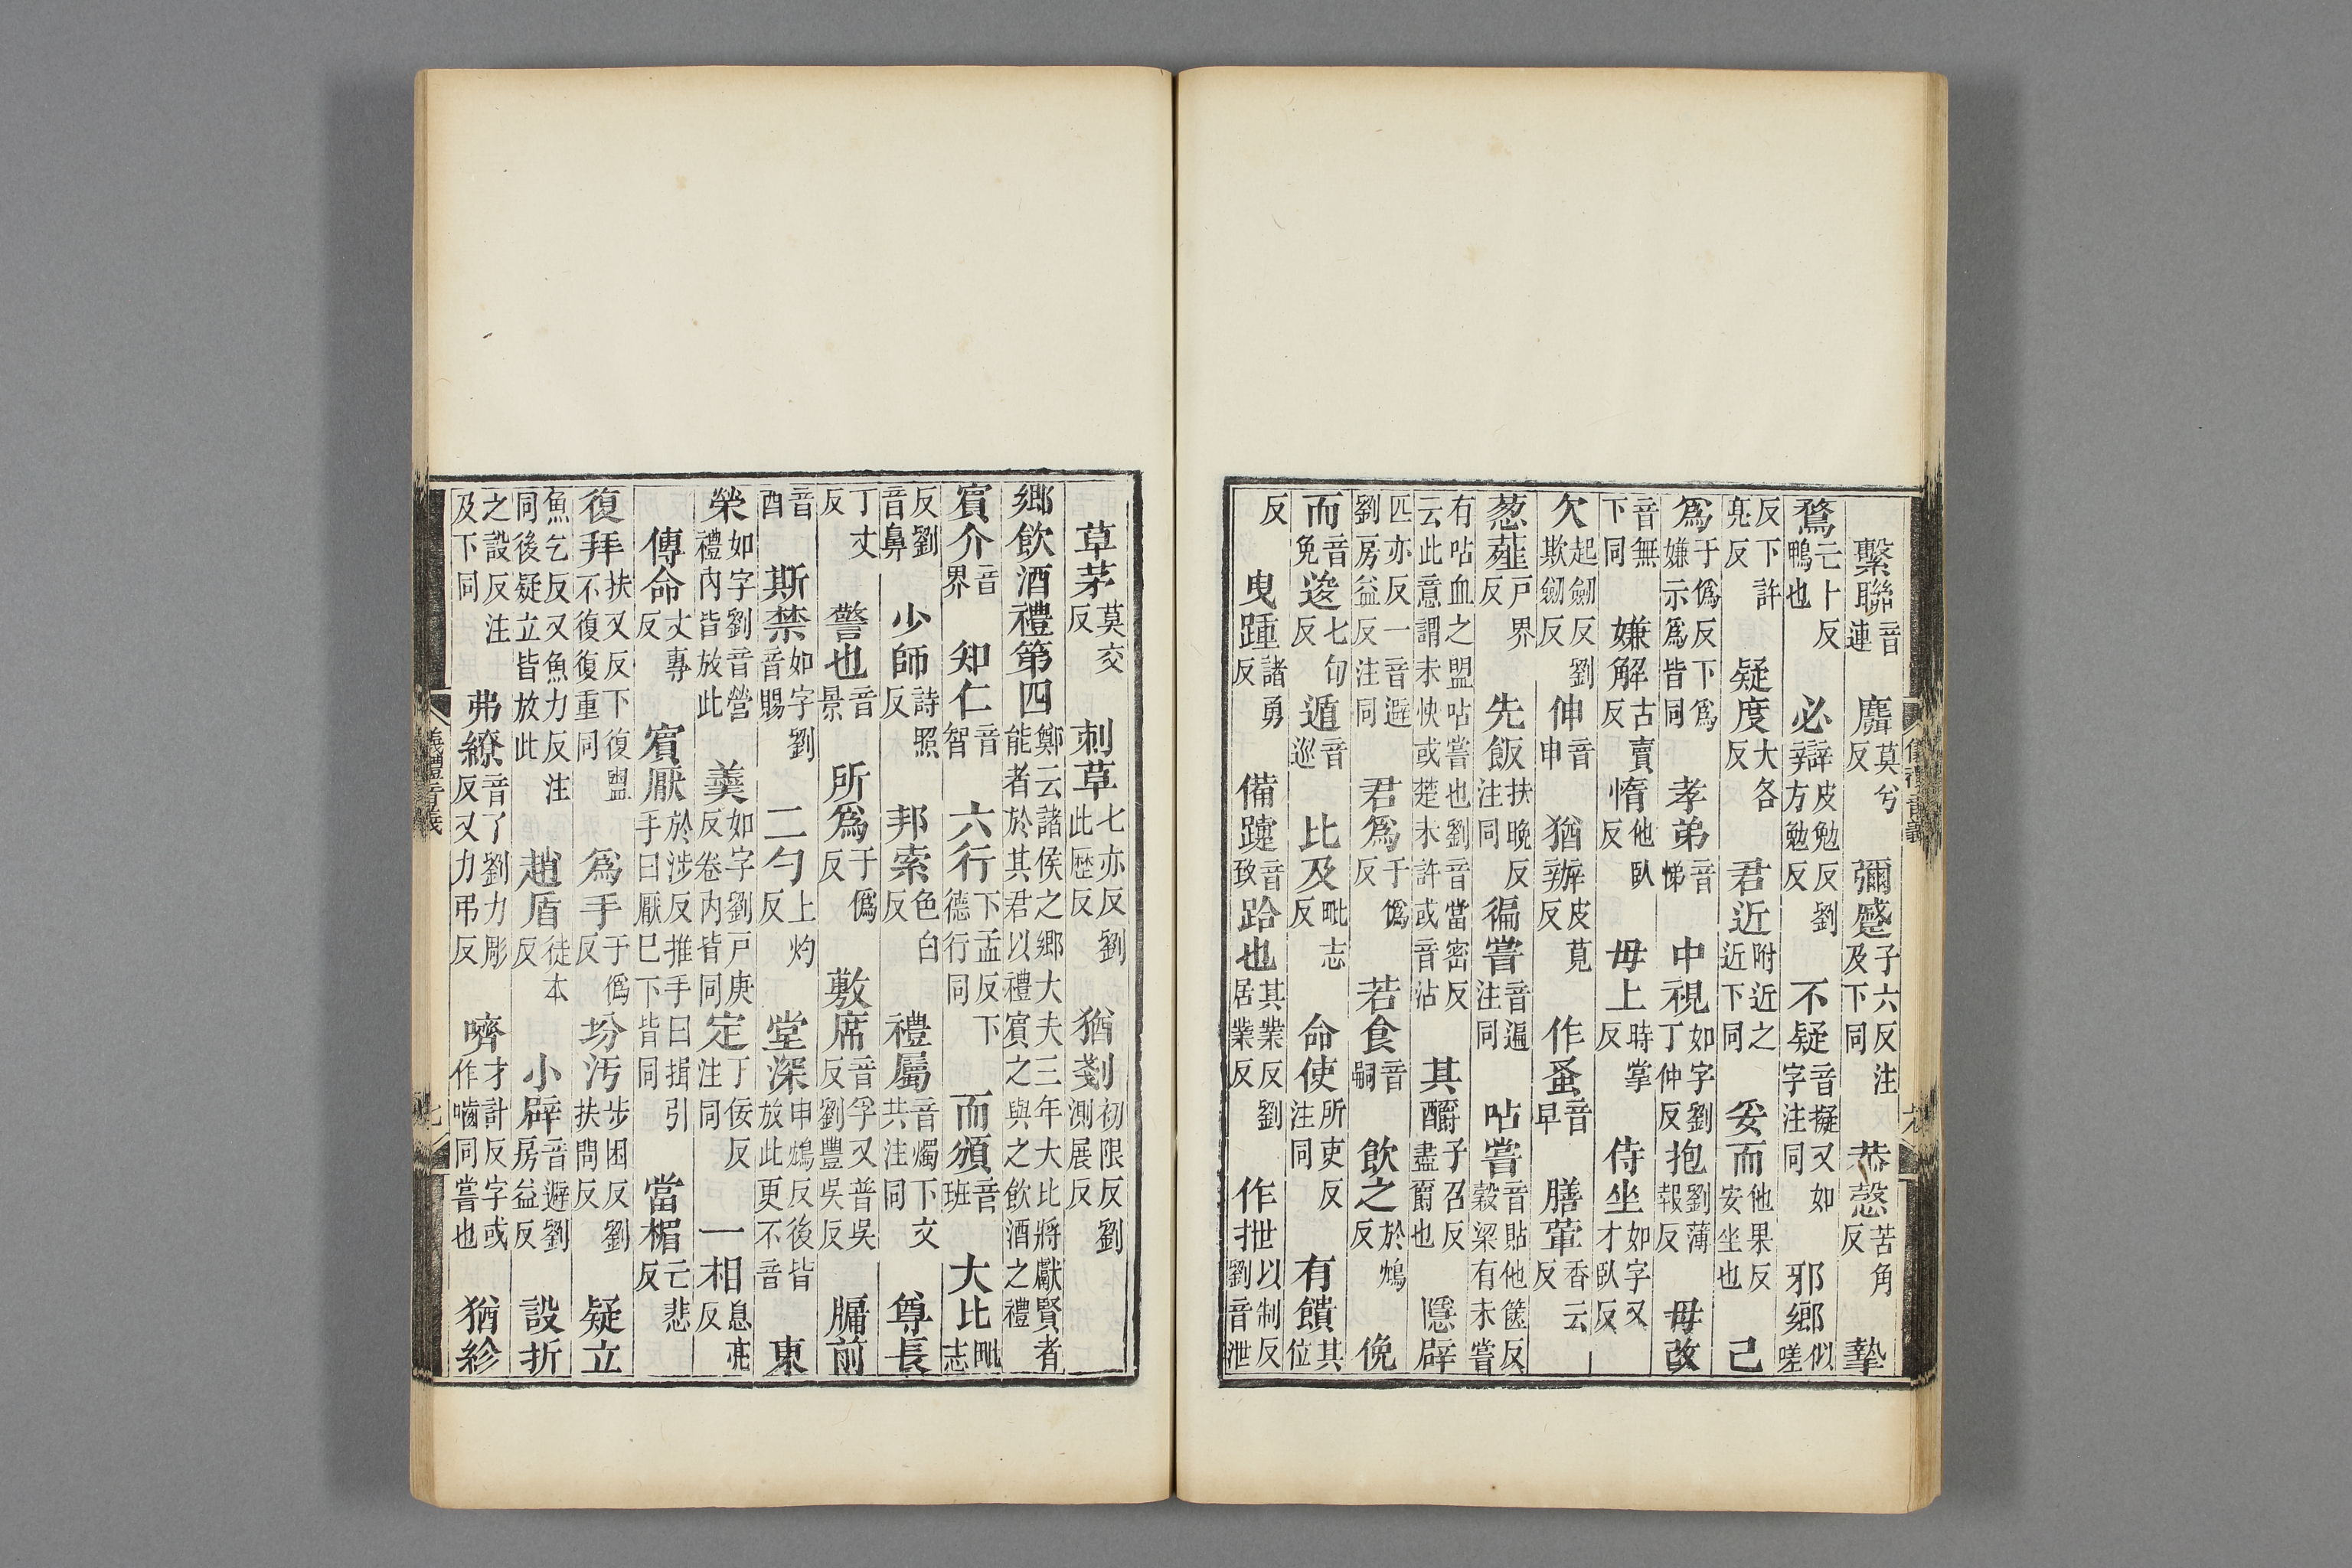 繫聯音連 麛莫兮反 彌蹙子六反注及下同 恭愨苦角反 摯
鶩亡卜反鴨也 必辯皮勉反劉方勉反 不疑音擬又如字注同 邪鄉似嗟
反下許亮反 疑度大各反 君近附近之近下同 妥而他果反安坐也 己
爲于僞反下爲嫌示爲皆同 孝弟音悌 中視如字劉丁仲反 抱劉薄報反 毋改
音無下同 嫌解古賣反 惰他臥反 毋上時掌反 侍坐如字又才臥反
欠起劒反劉欺劒反 伸音申 猶辦皮莧反 作蚤音早 膳葷香云反
葱薤戶界反 先飯扶晚反注同 徧嘗音遍注同 呫嘗音貼他篋反穀梁有未嘗
有呫血之盟呫嘗也劉音當密反云此意謂未快或楚未許或音沾 其釂子召反盡爵也 隱辟
匹亦反一音避劉房益反注同 君爲于僞反 若食音嗣 飲之於鴆反 俛
而音免 逡七旬反 遁音巡 比及毗志反 命使所吏反注同 有饋其位
反 曳踵諸勇反 備躓音致 跲也其業反劉居業反 作抴以制反劉音泄
草茅莫交反 刺草七亦反劉此歷反 猶剗初限反劉測展反
鄉飲酒禮第四鄭云諸侯之鄉大夫三年大比將獻賢者能者於其君以禮賓之與之飲酒之禮
賓介音界 知仁音智 六行下孟反下德行同 而頒音班 大比毗志
反劉音鼻 少師詩照反 邦索色白反 禮屬音燭下文共注同 尊長
丁丈反 警也音景 所爲于僞反 敷席音孚又普吳反劉豐吳反 牖前
音酉 斯禁如字劉音賜 二勺上灼反 堂深申鴆反後皆放此更不音 東
榮如字劉音營禮內皆放此 羹如字劉戶庚反卷內皆同 定丁佞反注同 一相息亮反
傳命丈專反 賓厭於涉反推手曰揖引手曰厭巳下皆同 當楣亡悲反
復拜扶又反下復盥不復復重同 爲手于僞反 坋汚步困反劉扶問反 疑立
魚乞反又魚力反注同後疑立皆放此 趙盾徒本反 小辟音避劉房益反 設折
之設反注及下同 弗繚音了劉力彫反又力弔反 嚌才計反字或作嚙同嘗也 猶紾